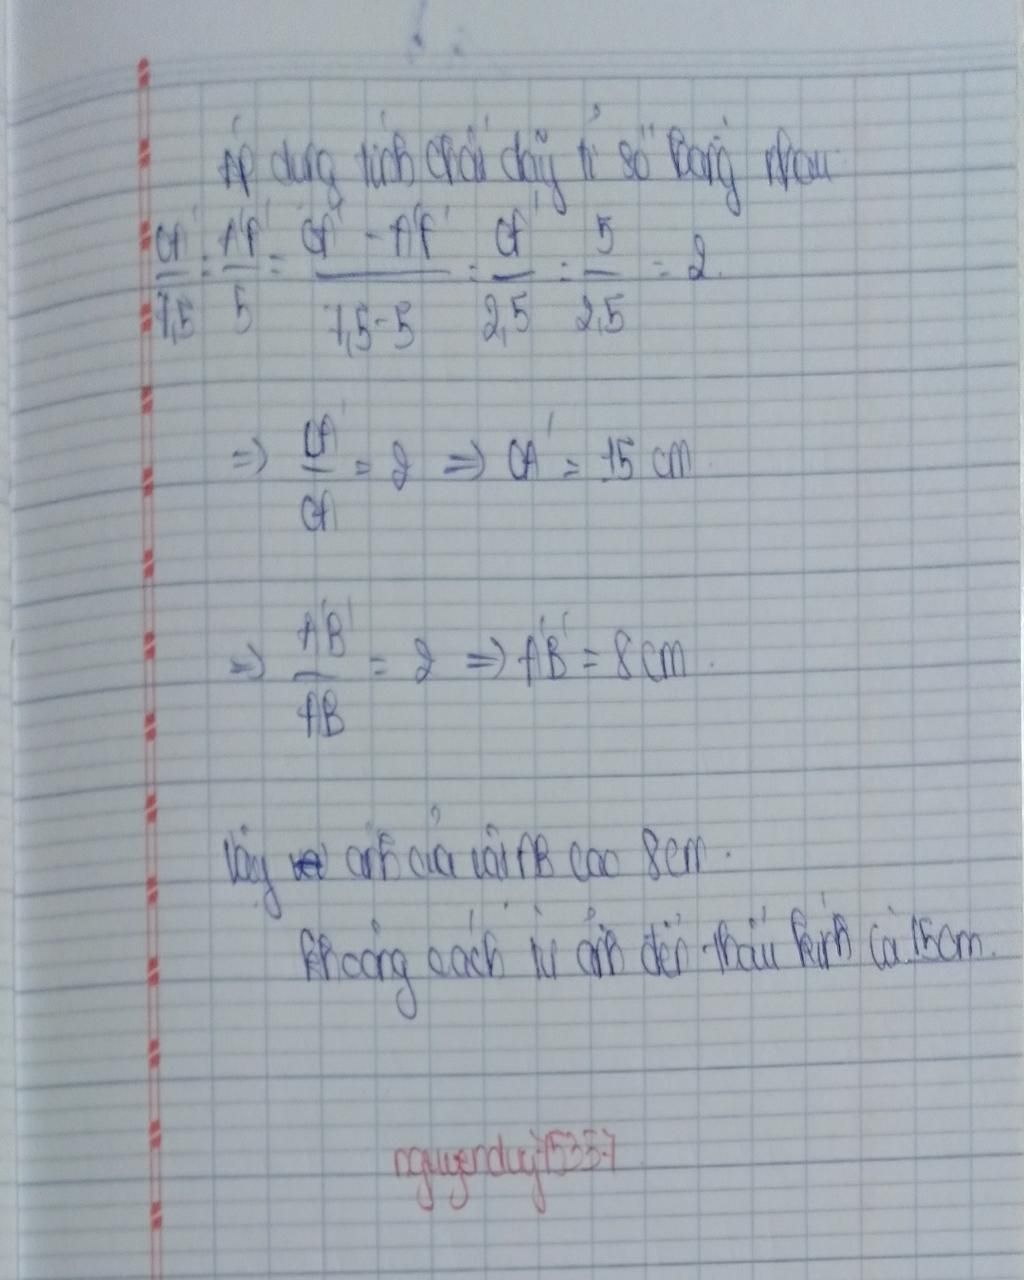 Áp dụng tính chất dãy tỉ số bằng nhau
OA'/7,5 = A'F'/5 = OA' - A'F'/7,5-5 = OF'/2,5 = 5/2,5 = 2.
=> OA'/OA = 2 => OA' = 15 cm
=> A'B'/AB = 2 => A'B' = 8 cm.
Vậy ảnh của vật AB cao 8cm.
Khoảng cách từ ảnh đến thấu kính là 15cm.